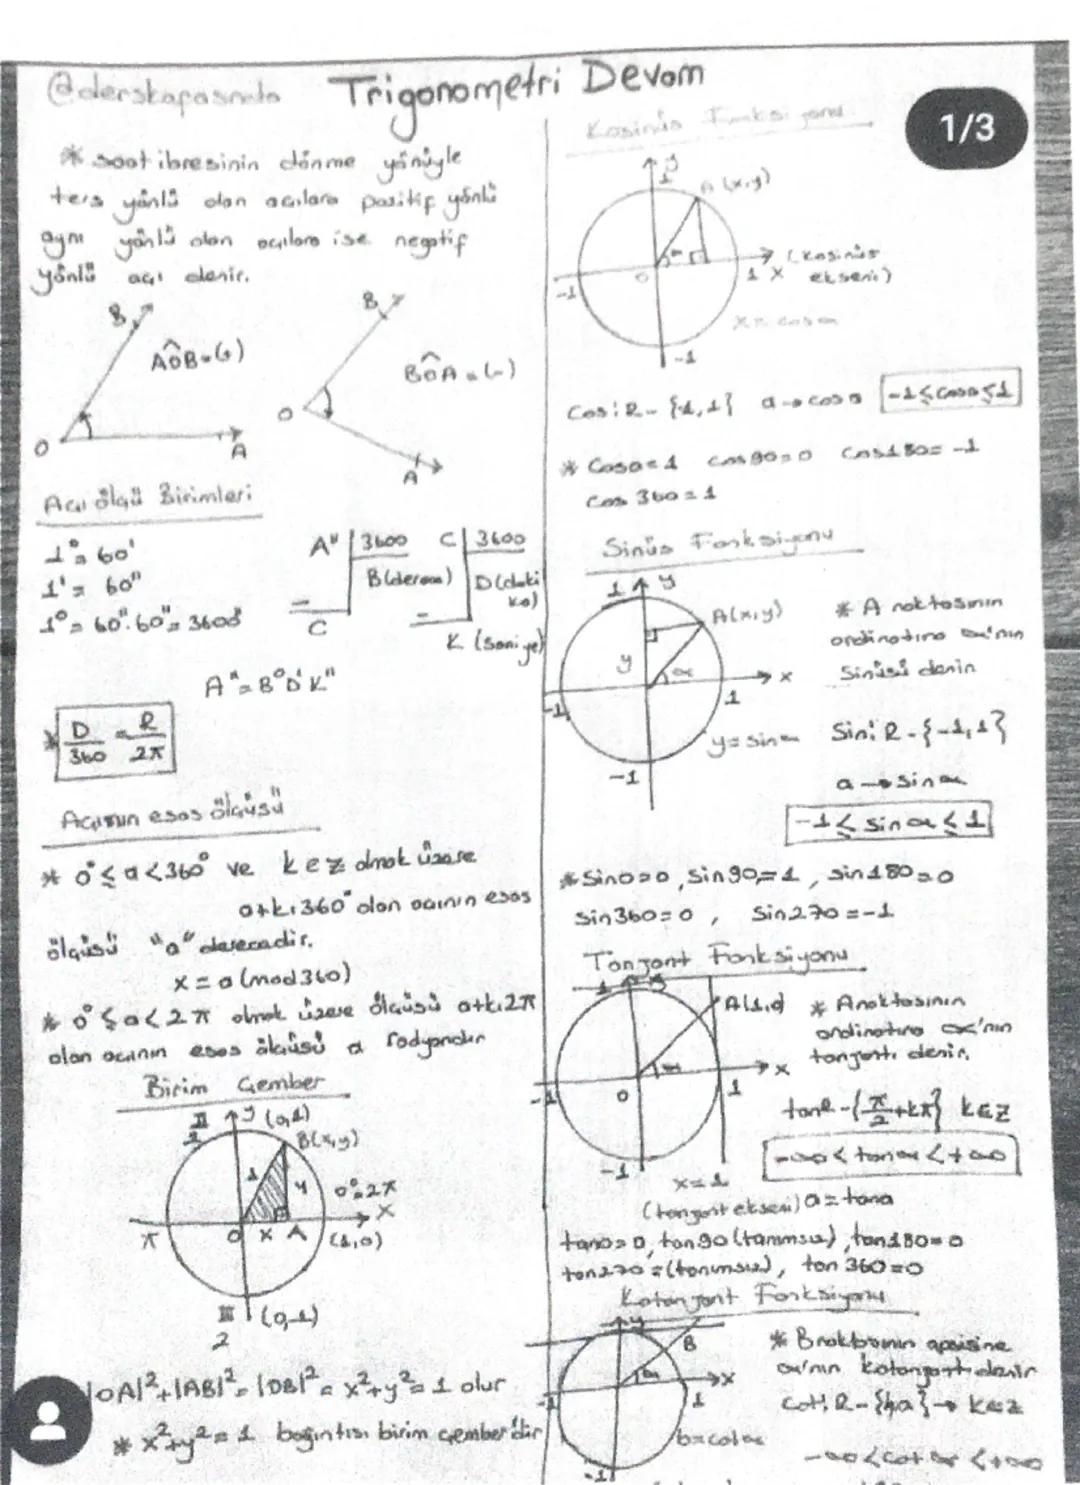 @derskafasında
Trigonometri Devam
1/3
* Saat ibresinin dönme yönüyle
ters yönlü olan açılara pozitif yönlü
aynı yönlü olan açılara ise negatif
yönlü açı denir.
B
AÔB=(+)
O
A
B
BÔA=(-)
O
A
Açı ölçü Birimleri
1°=60'
1'=60"
1°=60".60"=3600"
A" 3600
B(derece)
C
C 3600
D(daki
ka)
K (saniye)
A"=B°D'K"
* D/360 = R/2π
Açının esas ölçüsü
* 0°≤a<360° ve k∈Z olmak üzere
a+k.360° olan açının esas
ölçüsü "a" derecedir.
x≡a(mod360)
* 0°≤a<2π olmak üzere ölçüsü a+k.2π
olan açının esas ölçüsü a radyandır
Birim Çember
π/2
y (0,1)
B(x,y)
1
y
0°=2π
x
π
O x A
(1,0)
(0,-1)
2
|OA|²+|AB|²=|OB|²=x²+y²=1 olur
* x²+y²=1 bağıntısı birim çemberdir
Kosinüs Fonksiyonu
y
1
A(x,y)
O
(kosinüs
1 x ekseni)
-1
x=cosα
-1
Cos:R-{-1,1} a→cosa -1≤cosa≤1
* Cosa=1 cos90=0 cos180=-1
cos 360=1
Sinüs Fonksiyonu
1 y
A(x,y)
y
α
x
-1
1
y=sinα
-1
* A noktasının
ordinatına α'nın
Sinüsü denir
Sin:R-{-1,1}
a→sinα
-1≤sinα≤1
* Sin0=0, Sin90=1, sin180=0
sin360=0, Sin270=-1
Tanjant Fonksiyonu
1 y
A(1,a)
x
O
-1
1
-1
x=1
* A noktasının
ordinatına α'nın
tanjantı denir.
tanR-{π/2+kπ} k∈Z
-∞<tanα<+∞
(tanjant ekseni) a=tana
tan0=0, tan90(tanımsız), tan180=0
tan270=(tanımsız), tan 360=0
Kotanjant Fonksiyonu
y
B
x
-1
1
b=cotα
-1
* B noktasının apsisine
α'nın kotanjantı denir
k∈Z
-∞<cotα<+∞